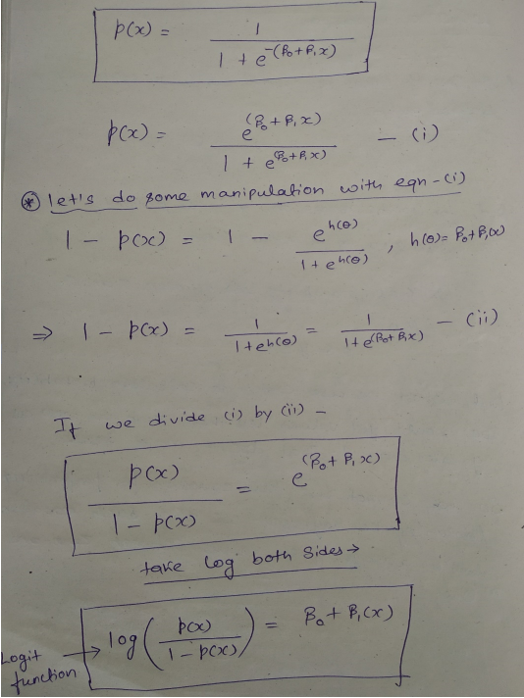 p(x) = 1 / (1 + e^-(β₀+β₁x))
p(x) = e^(β₀+β₁x) / (1 + e^(β₀+β₁x)) — (i)
⊛ let's do some manipulation with eqn-(i)
1 - p(x) = 1 - e^h(θ) / (1 + e^h(θ)) , h(θ) = β₀+β₁(x)
⇒ 1 - p(x) = 1 / (1+e^h(θ)) = 1 / (1+e^(β₀+β₁x)) — (ii)
If we divide (i) by (ii) –
p(x) / (1 - p(x)) = e^(β₀+β₁x)
take log both sides →
Logit function → log(p(x) / (1 - p(x))) = β₀ + β₁(x)